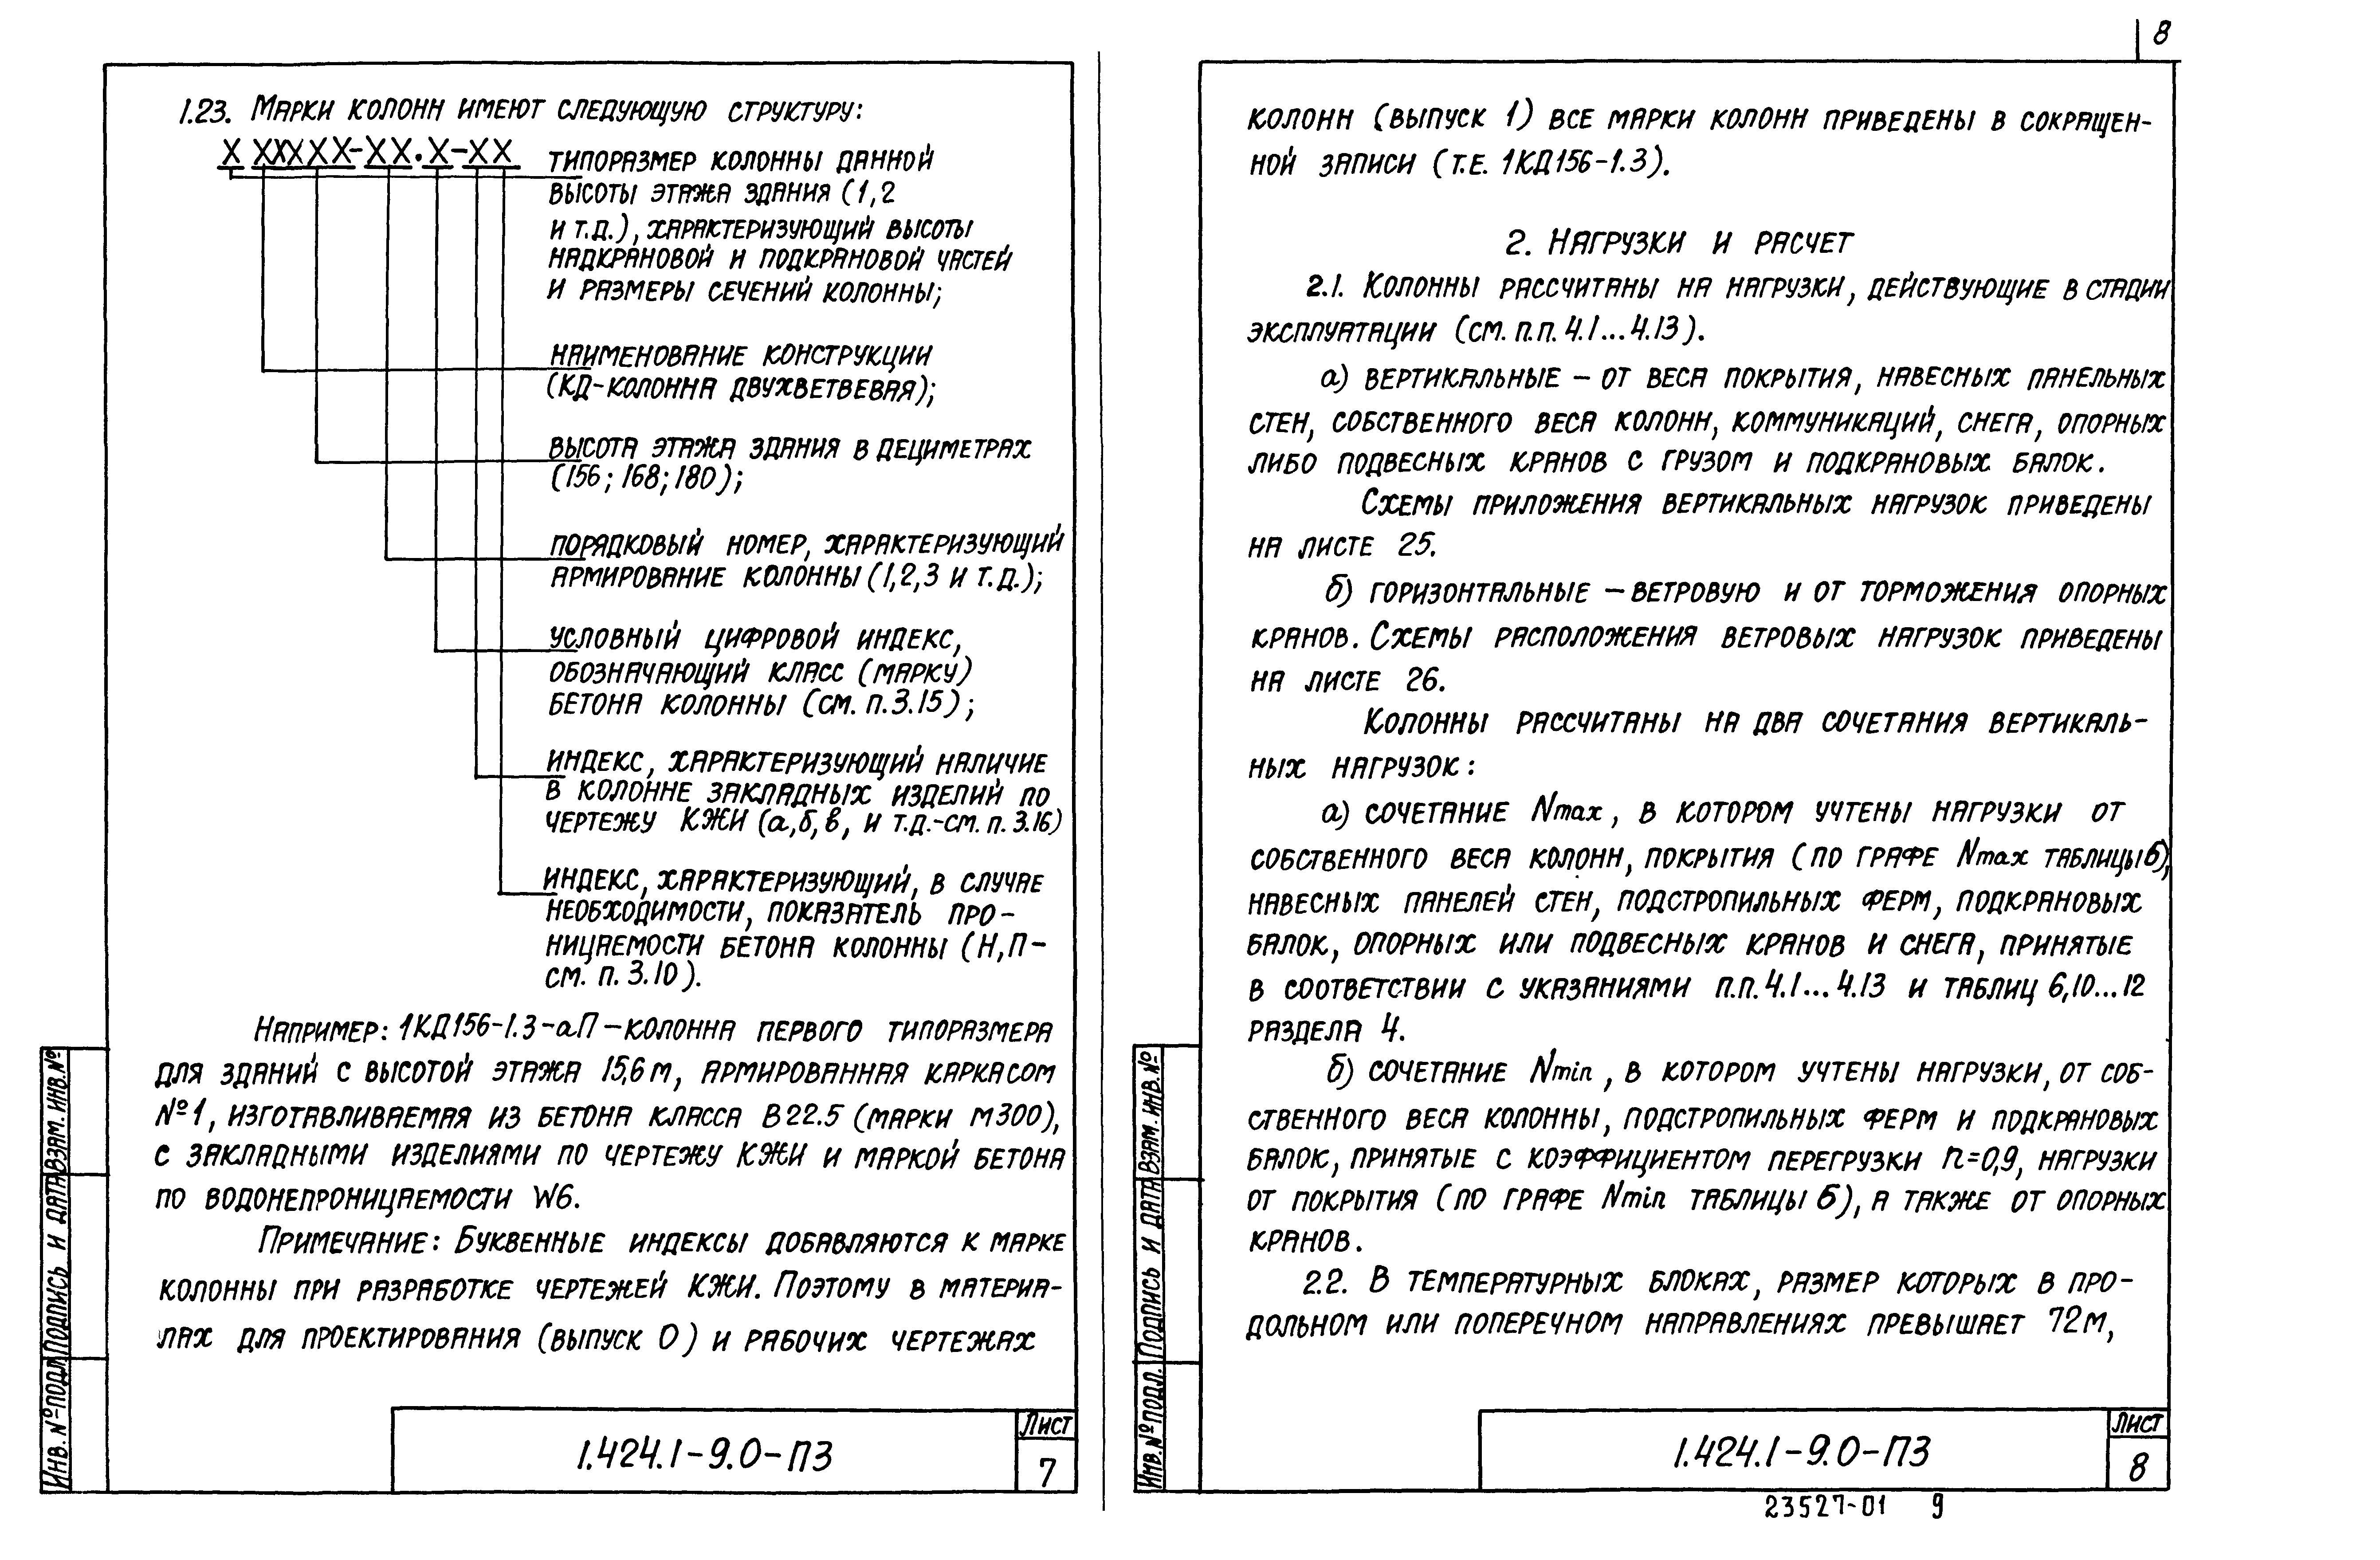 1.23. Марки колонн имеют следующую структуру:
Х ХХХХХ-ХХ.Х-ХХ
типоразмер колонны данной
высоты этажа здания (1,2
и т.д.), характеризующий высоты
надкрановой и подкрановой частей
и размеры сечений колонны;
наименование конструкции
(КД-колонна двухветвевая);
высота этажа здания в дециметрах
(156; 168; 180);
порядковый номер, характеризующий
армирование колонны (1,2,3 и т.д.);
условный цифровой индекс,
обозначающий класс (марку)
бетона колонны (см. п.3.15);
индекс, характеризующий наличие
в колонне закладных изделий по
чертежу КЖИ (а,б,в, и т.д.-см. п. 3.16)
индекс, характеризующий, в случае
необходимости, показатель про-
ницаемости бетона колонны (Н,П-
см. п. 3.10).
Например: 1КД156-1.3-аП-колонна первого типоразмера
для зданий с высотой этажа 15,6м, армированная каркасом
№1, изготавливаемая из бетона класса В22.5 (марки М300),
с закладными изделиями по чертежу КЖИ и маркой бетона
по водонепроницаемости W6.
Примечание: Буквенные индексы добавляются к марке
колонны при разработке чертежей КЖИ. Поэтому в материа-
лах для проектирования (выпуск 0) и рабочих чертежах
Инв.№подл. Подпись и дата Взам.инв.№
1.424.1-9.0-ПЗ
Лист
7
8
колонн (выпуск 1) все марки колонн приведены в сокращен-
ной записи (т.е. 1КД156-1.3).
2. Нагрузки и расчет
2.1. Колонны рассчитаны на нагрузки, действующие в стадии
эксплуатации (см. п.п. 4.1...4.13).
а) вертикальные - от веса покрытия, навесных панельных
стен, собственного веса колонн, коммуникаций, снега, опорных
либо подвесных кранов с грузом и подкрановых балок.
Схемы приложения вертикальных нагрузок приведены
на листе 25.
б) горизонтальные - ветровую и от торможения опорных
кранов. Схемы расположения ветровых нагрузок приведены
на листе 26.
Колонны рассчитаны на два сочетания вертикаль-
ных нагрузок:
а) сочетание Nmax, в котором учтены нагрузки от
собственного веса колонн, покрытия (по графе Nmax таблицы 6),
навесных панелей стен, подстропильных ферм, подкрановых
балок, опорных или подвесных кранов и снега, принятые
в соответствии с указаниями п.п. 4.1...4.13 и таблиц 6,10...12
раздела 4.
б) сочетание Nmin, в котором учтены нагрузки, от соб-
ственного веса колонны, подстропильных ферм и подкрановых
балок, принятые с коэффициентом перегрузки n=0,9, нагрузки
от покрытия (по графе Nmin таблицы 6), а также от опорных
кранов.
2.2. В температурных блоках, размер которых в про-
дольном или поперечном направлениях превышает 72м,
Инв.№подл. Подпись и дата Взам.инв.№
1.424.1-9.0-ПЗ
Лист
8
23527-01 9